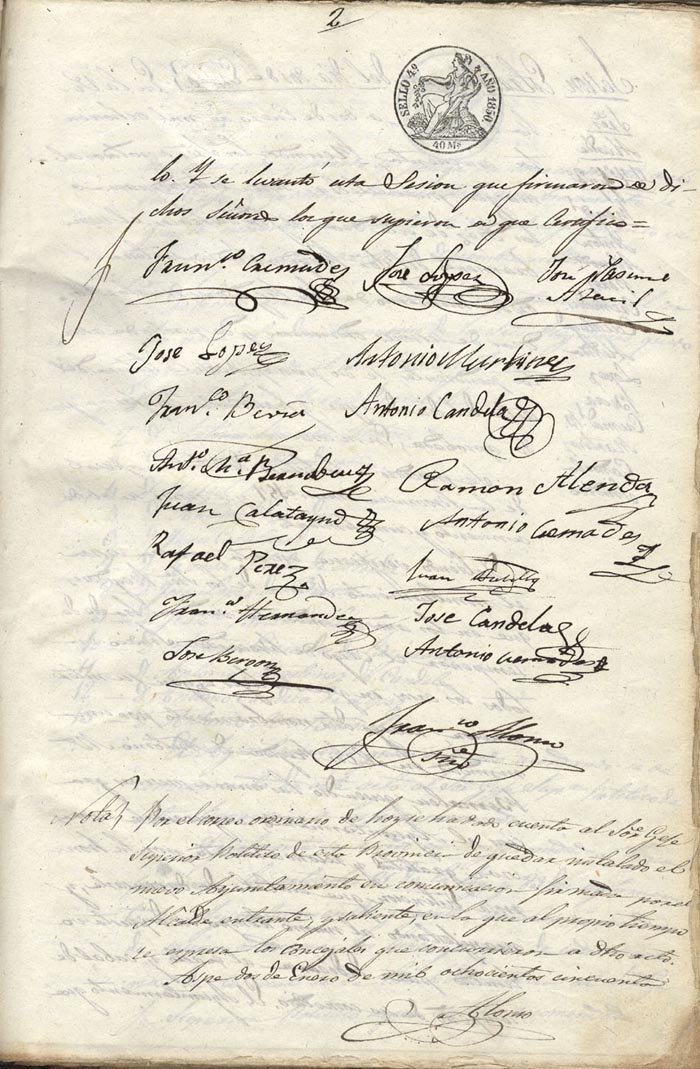 2
SELLO 4º AÑO 1850.
40 Ms
lo. Y se levantó esta Sesion que firmaron de di-
chos Señores los que supieron de que Certifico=
Franco. Cremades Jose Lopez José
Jose Lopez Antonio Martinez
Franco. Antonio Candela
Anto. Ma.
Ramon Alenda
Juan Calatayud
Antonio Cremades
Rafael Perez
Juan
Franco. Hernandez
Jose Candela
Jose
Antonio Cremades
Franco. Alonso
Srio
Nota Por el correo ordinario de hoy se ha dado cuenta al Sor. Gefe
Superior Politico de esta Provincia de quedar instalado el
nuevo Ayuntamiento en comunicacion firmada por el
Alcalde entrante, y saliente, en la que al propio tiempo
se espresa los Concejales que concurrieron a dho acto
Aspe dos de Enero de mil ochocientos cincuenta
Alonso